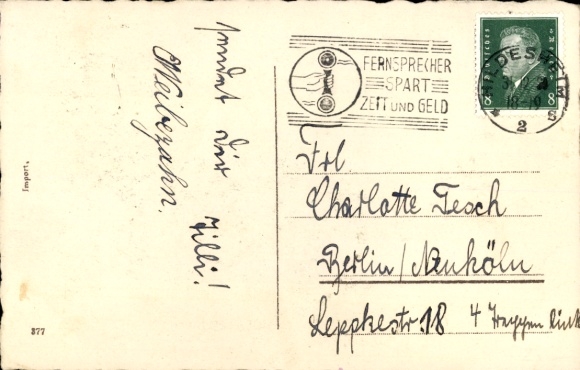 sendet Dir Zilli!
Weibezahn.
Import.
377
FERNSPRECHER
SPART
ZEIT UND GELD
DEUTSCHES REICH
8 8
HILDESHEIM
2
S
Frl
Charlotte Tesch
Berlin/Neuköln
Leppkestr 18 4 Treppen link